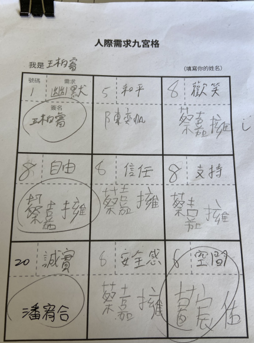 人際需求九宮格
我是 王柏甯 (填寫你的姓名)
號碼 需求
1 幽默 5 和平 8 歡笑
簽名
王柏甯 陳 蔡嘉擁
8 自由 8 信任 8 支持
蔡嘉擁 蔡嘉擁 蔡嘉擁
20 誠實 6 安全感 8 空間
潘宥合 蔡嘉擁